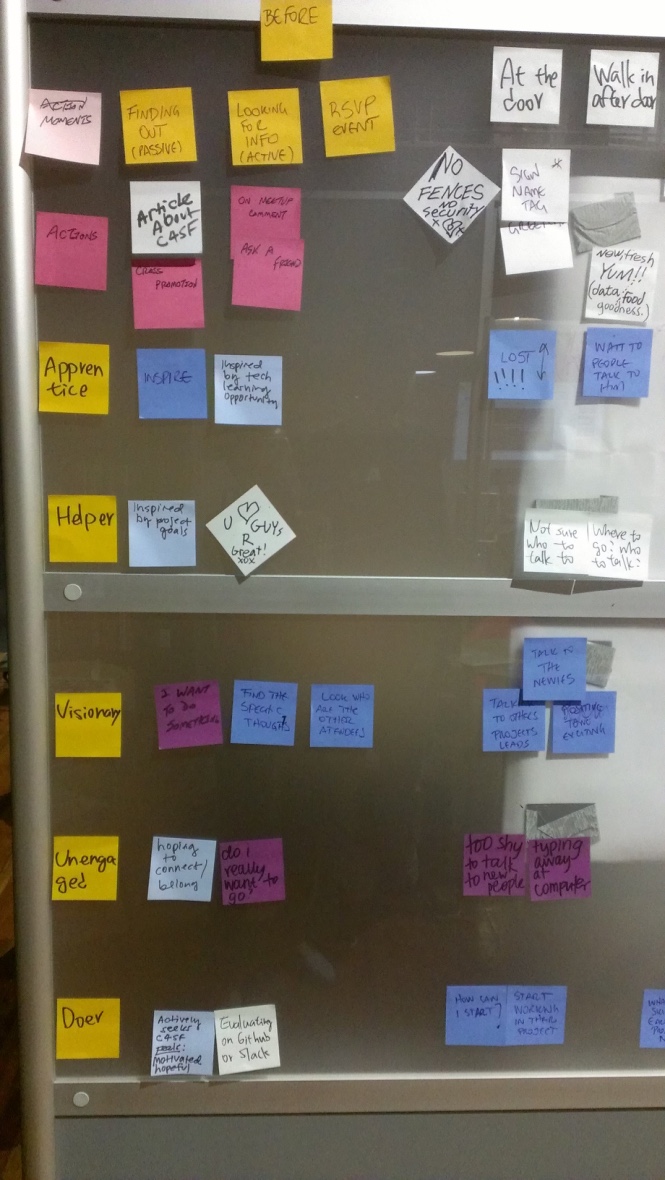 BEFORE
ACTION
MOMENTS
FINDING
OUT
(PASSIVE)
LOOKING
FOR
INFO
(ACTIVE)
RSVP
EVENT
At the
door
Walk in
after door
NO
FENCES
NO
security
SIGN
NAME
TAG
ACTIONS
Article
About
C4SF
CROSS
PROMOTION
ON MEETUP
COMMENT
ASK A
FRIEND
New, fresh
YUM!!
(data, food
goodness.)
Appren
tice
INSPIRE
Inspired
by tech
learning
opportunity
LOST
!!!!
WAIT TO
PEOPLE
TALK TO
Helper
Inspired
by project
goals
U ♡ GUYS
R
Great!
xox
Not sure
who to
talk to
Where to
go? who
to talk?
Visionary
I WANT
TO DO
SOMETHING
FIND THE
SPECIFIC
THOUGHTS
LOOK WHO
ARE THE
OTHER
ATENDERS
TALK TO
THE
NEWIES
TALK
TO OTHERS
PROJECTS
LEADS
POSITIVE
TONE
EXCITING
Unenga
ged
hoping
to
connect/
belong
do i
really
want to
go?
too shy
to talk
to new
people
typing
away
at
computer
Doer
Actively
seeks
C4SF
motivated
hopeful
Evaluating
on Github
or Slack
HOW CAN
I START?
START
WORKING
IN THEIR
PROJECT